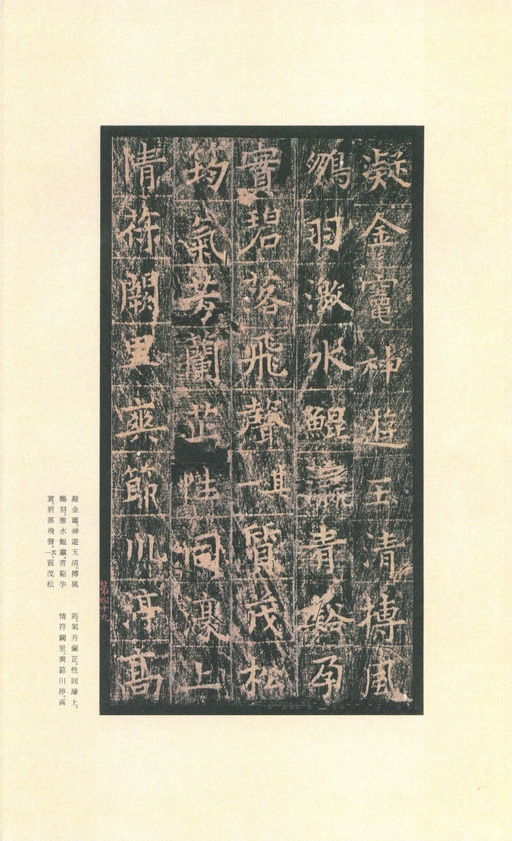 凝金竈神遊玉清摶風
鵬羽激水鯤瀛青谿孕
實碧落飛聲其一質茂松
筠氣芳蘭芷性同濠上
情符闕里爽節川渟高
凝金竈,神遊玉清。摶風
鵬羽,激水鯤瀛。青谿孕
實,碧落飛聲。其一。質茂松
筠,氣芳蘭芷。性同濠上,
情符闕里。爽節川渟,高